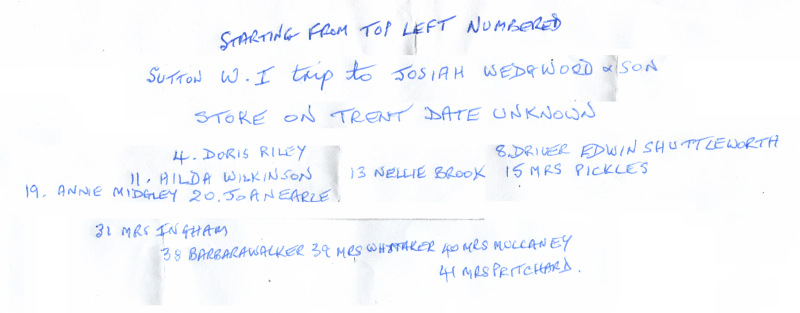 STARTING FROM TOP LEFT NUMBERED
SUTTON W.I trip to JOSIAH WEDGWOOD & SON
STOKE ON TRENT DATE UNKNOWN
4. DORIS RILEY 8. DRIVER EDWIN SHUTTLEWORTH
11. HILDA WILKINSON 13 NELLIE BROOK 15 MRS PICKLES
19. ANNIE MIDGLEY 20. JOAN EARLE
31 MRS INGHAM
38 BARBARA WALKER 39 MRS WHITTAKER 40 MRS MULLANEY
41 MRS PRITCHARD.